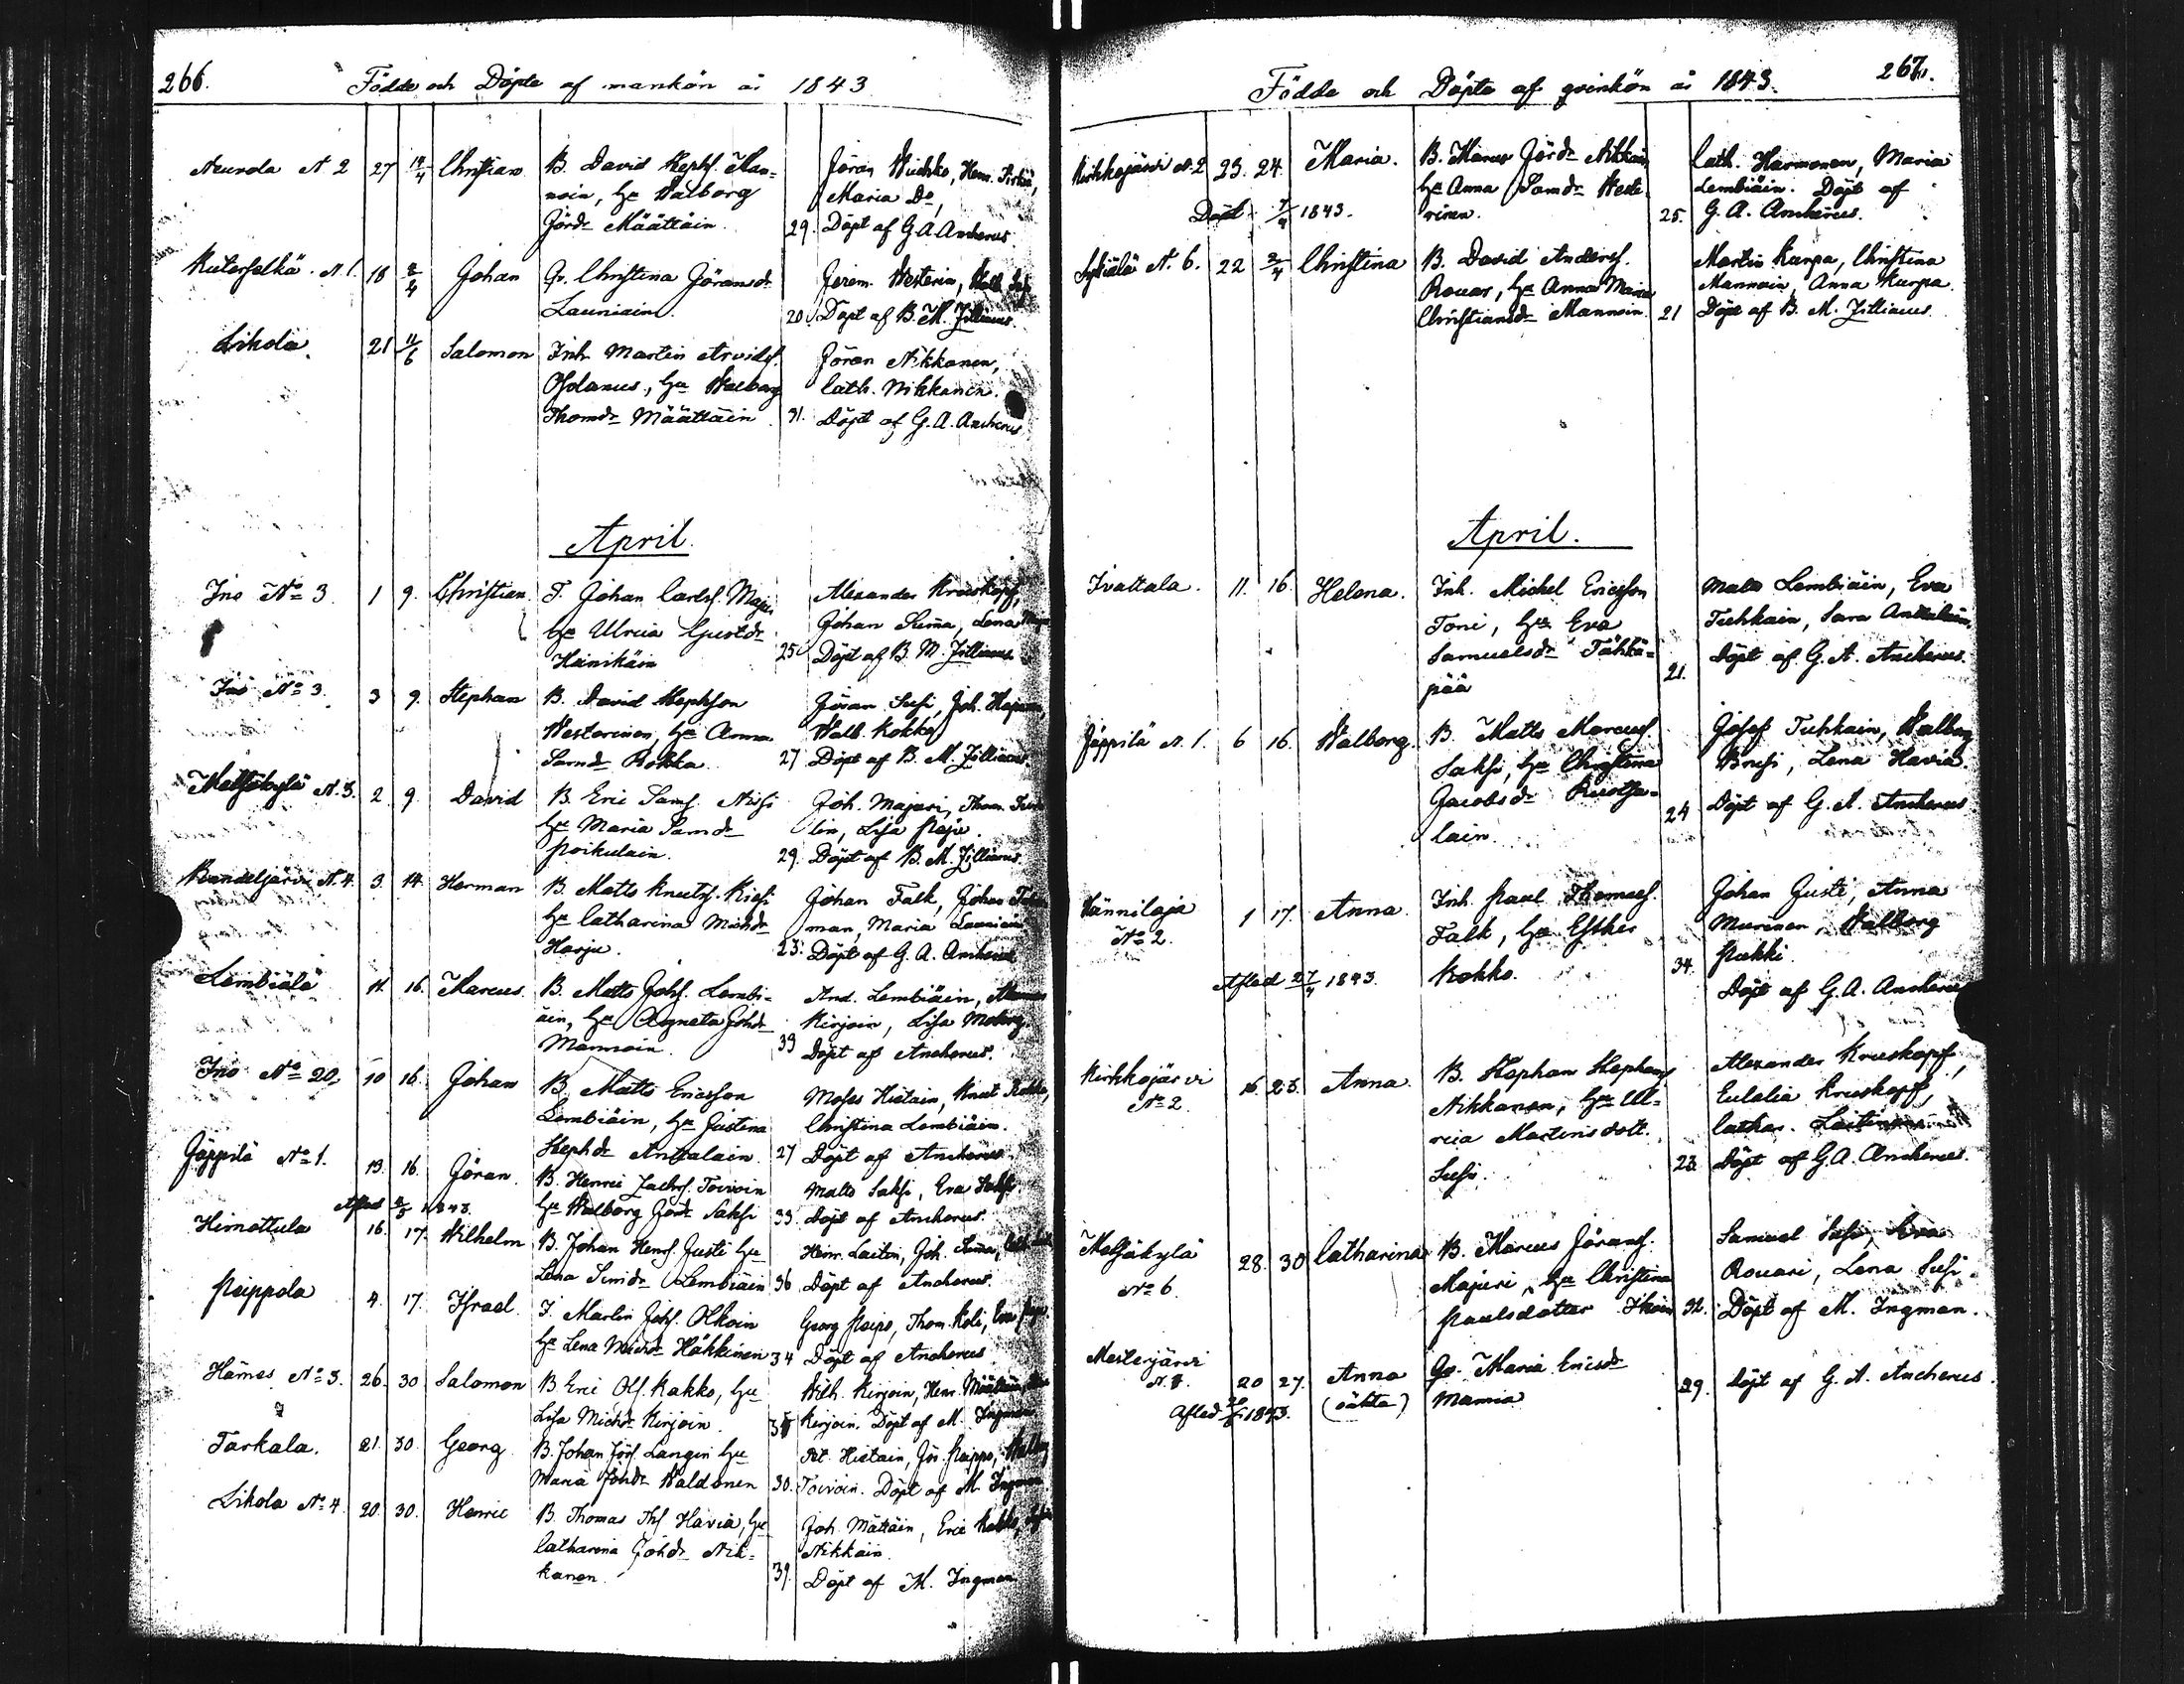 266.
Födde och Döpte af mankön år 1843
Neuvola N. 2 27 Christian B. David Stephs. Man=
noin, Hu Walborg
Jörd. Määttäin 29.
Jöran Wuohko, Henr.
Maria Do,
Döpt af G. A. Ancherus.
N. 1. 18 2/4 Johan Qv. Christina Jöransdr
Launiain 20.
Jerem. Westerin, Walb.
Döpt af B. M. Jilliacus.
Likola. 21 Salomon Inh. Martin Arvids.
Hu Walborg
Thomdr Määttäin 31.
Jöran Nikkanen,
Cath. Nikkanen.
Döpt af G. A. Ancherus
April.
Ino No 3. 1 9. Christian F. Johan Carls.
Hu Ulrica Gustdr
Heinikäin 25
Alexander Kruskopf,
Johan Suma, Lena
Döpt af B. M. Jilliacus
Ino No 3. 3 9. Stephan B. David Stephson
Westerinen, Hu Anna
Samdr Rokka. 27
Jöran Susi, Joh.
Walb. Kokko
Döpt af B. M. Jilliacus
Metsäkylä N. 3. 2. 9. David B. Eric Sams.
Hu Maria Samdr
Poikulain. 29.
Joh. Majuri, Thom.
Lisa Paju.
Döpt af B. M. Jilliacus.
N. 4. 3. 14. Herman B. Matts Knuts. Kiesi
Hu Catharina Michdr
Harju. 23.
Johan Falk, Johan
man, Maria Launiain
Döpt af G. A. Ancherus
Lembiälä 11. 16. Marcus B. Matts Johs. Lembi=
äin, Hu Agneta Johdr
Mannoin. 39
And. Lembiäin,
Kirjoin, Lisa Moberg
Döpt af Ancherus.
Ino No 20. 10 16. Johan B. Matts Ericsson
Lembiäin, Hu Justina
Stephdr Anttalain. 27
Moses Hietain, Knut
Christina Lembiäin.
Döpt af Ancherus.
Jäppilä No 1. 13. 16. Jöran. B. Henric Zachs. Toivoin
Hu Walborg Jördr Saksi 33.
Matts Saksi, Eva Saksi
Döpt af Ancherus.
Afled 1843.
Himottula 16. 17. Wilhelm B. Johan Henrs. Justi Hu
Lena Simdr Lembiäin 36
Henr. Laiten, Joh. Suma,
Döpt af Ancherus.
Peippola 4. 17. Israel. I. Martin Johs. Olkoin
Hu Lena Michdr Häkkinen 34
Georg Peipo, Thom. Koli, Eva
Döpt af Ancherus
Hämes No 3. 26. 30 Salomon B. Eric Ols. Kakko, Hu
Lisa Michdr Kirjoin. 35
Wilh. Kirjoin, Henr. Määttäin,
Kirjoin. Döpt af M. Ingman
Tarkala. 21. 30. Georg B. Johan Jörs. Langin Hu
Maria Johdr Waldonen 30.
Pet. Hietain, Jör. Peippo, Walborg
Toivoin. Döpt af M. Ingman
Likola No 4. 20. 30. Henric B. Thomas Ths. Havia, Hu
Catharina Johdr Nik=
kanen. 39.
Joh. Mättäin, Eric Kakko,
Nikkain.
Döpt af M. Ingman
267.
Födde och Döpte af qvinkön år 1843.
Kirkkojärvi N. 2 23. 24. Maria. B. Marcus Jörd. Nikkain
Hu Anna Samdr Weste=
rinen. 25.
Cath. Harmonen, Maria
Lembiäin. Döpt af
G. A. Ancherus.
1843.
N. 6. 22 2/4 Christina B. David Anders.
Rouar, Hu Anna Maria
Christiansdr Mannoin 21
Martin Kurpa, Christina
Mannoin, Anna Kurpa.
Döpt af B. M. Jilliacus.
April.
Ivattala. 11. 16. Helena. Inh. Michel Ericsson
Toni, Hu Eva
Samuelsdr Tähkä=
pää 21.
Matts Lembiäin, Eva
Tuhkain, Sara Anttalain,
Döpt af G. A. Ancherus.
Jäppilä N. 1. 6 16. Walborg. B. Matts Marcus.
Saksi, Hu Christina
Jacobsdr Ruotsa=
lain. 24
Josef Tuhkain, Walborg
Brusi, Lena Havia.
Döpt af G. A. Ancherus
Vännilaja
No 2. 1 17. Anna. Inh. Paul Thomas.
Falk, Hu Esther
Kokko. 34.
Johan Justi, Anna
Murinen, Walborg
Pukki.
Döpt af G. A. Ancherus
Afled 27/4 1843.
Kirkkojärvi
No 2. 16. 23. Anna. B. Stephan Stephans
Nikkanen, Hu Ul=
rica Martinsdott.
Susi. 23
Alexander Kruskopf,
Eulalia Kruskopf,
Cathar. Laitinen
Döpt af G. A. Ancherus.
Metsäkylä
No 6. 28. 30 Catharina B. Marcus Jörans.
Majuri, Hu Christina
Paulsdotter Ikoin 32.
Samuel Susi, Eva
Rouari, Lena Susi.
Döpt af M. Ingman.
Mesterjärvi
N. 8. 20 27. Anna
(oäkta) Qv. Maria Ericsdr
Mamia 29.
Döpt af G. A. Ancherus.
Afled 1843.